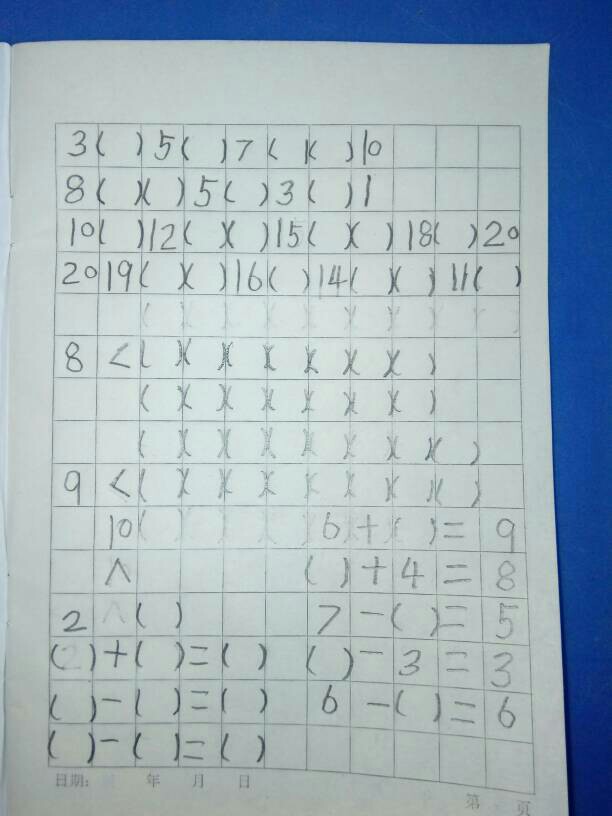 3( )5( )7( )( )10
8( )( )5( )3( )1
10( )12( )( )15( )( )18( )20
20 19( )( )16( )14( )( )11( )
( )( )( )( )( )( )( )( )( )
8 <( )( )( )( )( )( )( )
( )( )( )( )( )( )( )
( )( )( )( )( )( )( )( )
9 <( )( )( )( )( )( )( )( )
10( ) 6+( )=9
∧ ( )+4=8
2 ∧ ( ) 7-( )=5
( )+( )=( ) ( )-3=3
( )-( )=( ) 6-( )=6
( )-( )=( )
日期: 年 月 日
第 页